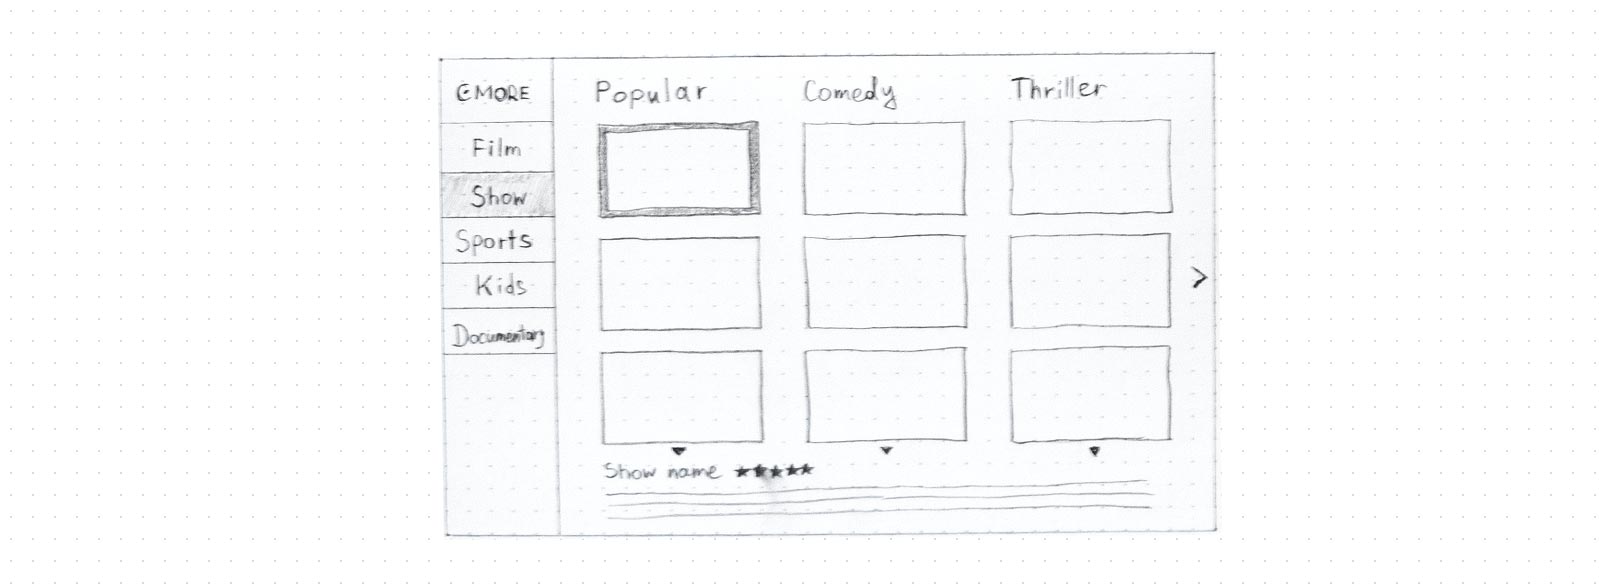 CMORE
Film
Show
Sports
Kids
Documentary
Popular
Comedy
Thriller
Show name ★★★★★